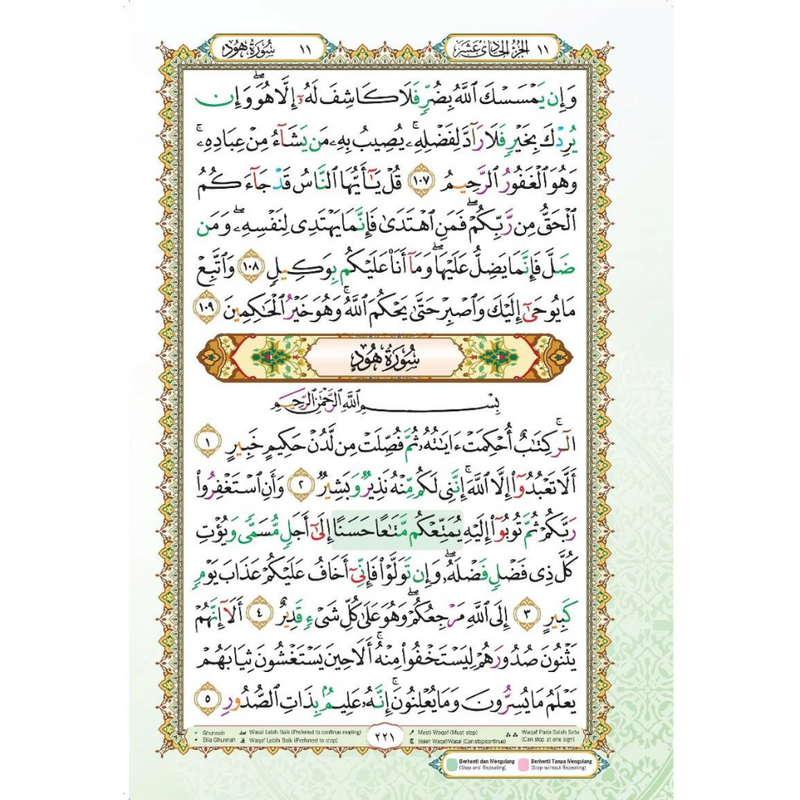 ١١ سُورَةُ هُودٍ
الجزء الحادي عشر ١١
وَإِن يَمْسَسْكَ ٱللَّهُ بِضُرٍّ فَلَا كَاشِفَ لَهُۥٓ إِلَّا هُوَ ۖ وَإِن
يُرِدْكَ بِخَيْرٍ فَلَا رَآدَّ لِفَضْلِهِۦ ۚ يُصِيبُ بِهِۦ مَن يَشَآءُ مِنْ عِبَادِهِۦ ۚ
وَهُوَ ٱلْغَفُورُ ٱلرَّحِيمُ ١٠٧ قُلْ يَـٰٓأَيُّهَا ٱلنَّاسُ قَدْ جَآءَكُمُ
ٱلْحَقُّ مِن رَّبِّكُمْ ۖ فَمَنِ ٱهْتَدَىٰ فَإِنَّمَا يَهْتَدِى لِنَفْسِهِۦ ۖ وَمَن
ضَلَّ فَإِنَّمَا يَضِلُّ عَلَيْهَا ۖ وَمَآ أَنَا۠ عَلَيْكُم بِوَكِيلٍ ١٠٨ وَٱتَّبِعْ
مَا يُوحَىٰٓ إِلَيْكَ وَٱصْبِرْ حَتَّىٰ يَحْكُمَ ٱللَّهُ ۚ وَهُوَ خَيْرُ ٱلْحَـٰكِمِينَ ١٠٩
سُورَةُ هُودٍ
بِسْمِ ٱللَّهِ ٱلرَّحْمَـٰنِ ٱلرَّحِيمِ
الٓر ۚ كِتَـٰبٌ أُحْكِمَتْ ءَايَـٰتُهُۥ ثُمَّ فُصِّلَتْ مِن لَّدُنْ حَكِيمٍ خَبِيرٍ ١
أَلَّا تَعْبُدُوٓا۟ إِلَّا ٱللَّهَ ۚ إِنَّنِى لَكُم مِّنْهُ نَذِيرٌ وَبَشِيرٌ ٢ وَأَنِ ٱسْتَغْفِرُوا۟
رَبَّكُمْ ثُمَّ تُوبُوٓا۟ إِلَيْهِ يُمَتِّعْكُم مَّتَـٰعًا حَسَنًا إِلَىٰٓ أَجَلٍ مُّسَمًّى وَيُؤْتِ
كُلَّ ذِى فَضْلٍ فَضْلَهُۥ ۖ وَإِن تَوَلَّوْا۟ فَإِنِّىٓ أَخَافُ عَلَيْكُمْ عَذَابَ يَوْمٍ
كَبِيرٍ ٣ إِلَى ٱللَّهِ مَرْجِعُكُمْ ۖ وَهُوَ عَلَىٰ كُلِّ شَىْءٍ قَدِيرٌ ٤ أَلَآ إِنَّهُمْ
يَثْنُونَ صُدُورَهُمْ لِيَسْتَخْفُوا۟ مِنْهُ ۚ أَلَا حِينَ يَسْتَغْشُونَ ثِيَابَهُمْ
يَعْلَمُ مَا يُسِرُّونَ وَمَا يُعْلِنُونَ ۚ إِنَّهُۥ عَلِيمٌۢ بِذَاتِ ٱلصُّدُورِ ٥
Ghunnah Wasal Lebih Baik (Preferred to continue reading) ٢٢١ Mesti Waqaf (Must stop) Waqaf Pada Salah Satu
Bila Ghunnah Waqaf Lebih Baik (Preferred to stop) Boleh Waqaf/Wasal (Can stop/continue) (Can stop at one sign)
Berhenti dan Mengulang Berhenti Tanpa Mengulang
(Stop and Repeating) (Stop without Repeating)